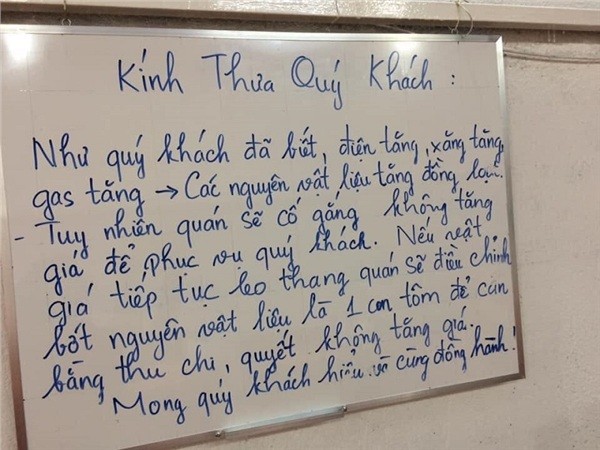 Kính Thưa Quý Khách :
Như quý khách đã biết, điện tăng, xăng tăng,
gas tăng → Các nguyên vật liệu tăng đồng loạt.
- Tuy nhiên quán sẽ cố gắng không tăng
giá để phục vụ quý khách. Nếu vật
giá tiếp tục leo thang quán sẽ điều chỉnh
bớt nguyên vật liệu là 1 con tôm để cân
bằng thu chi, quyết không tăng giá.
Mong quý khách hiểu và cùng đồng hành!